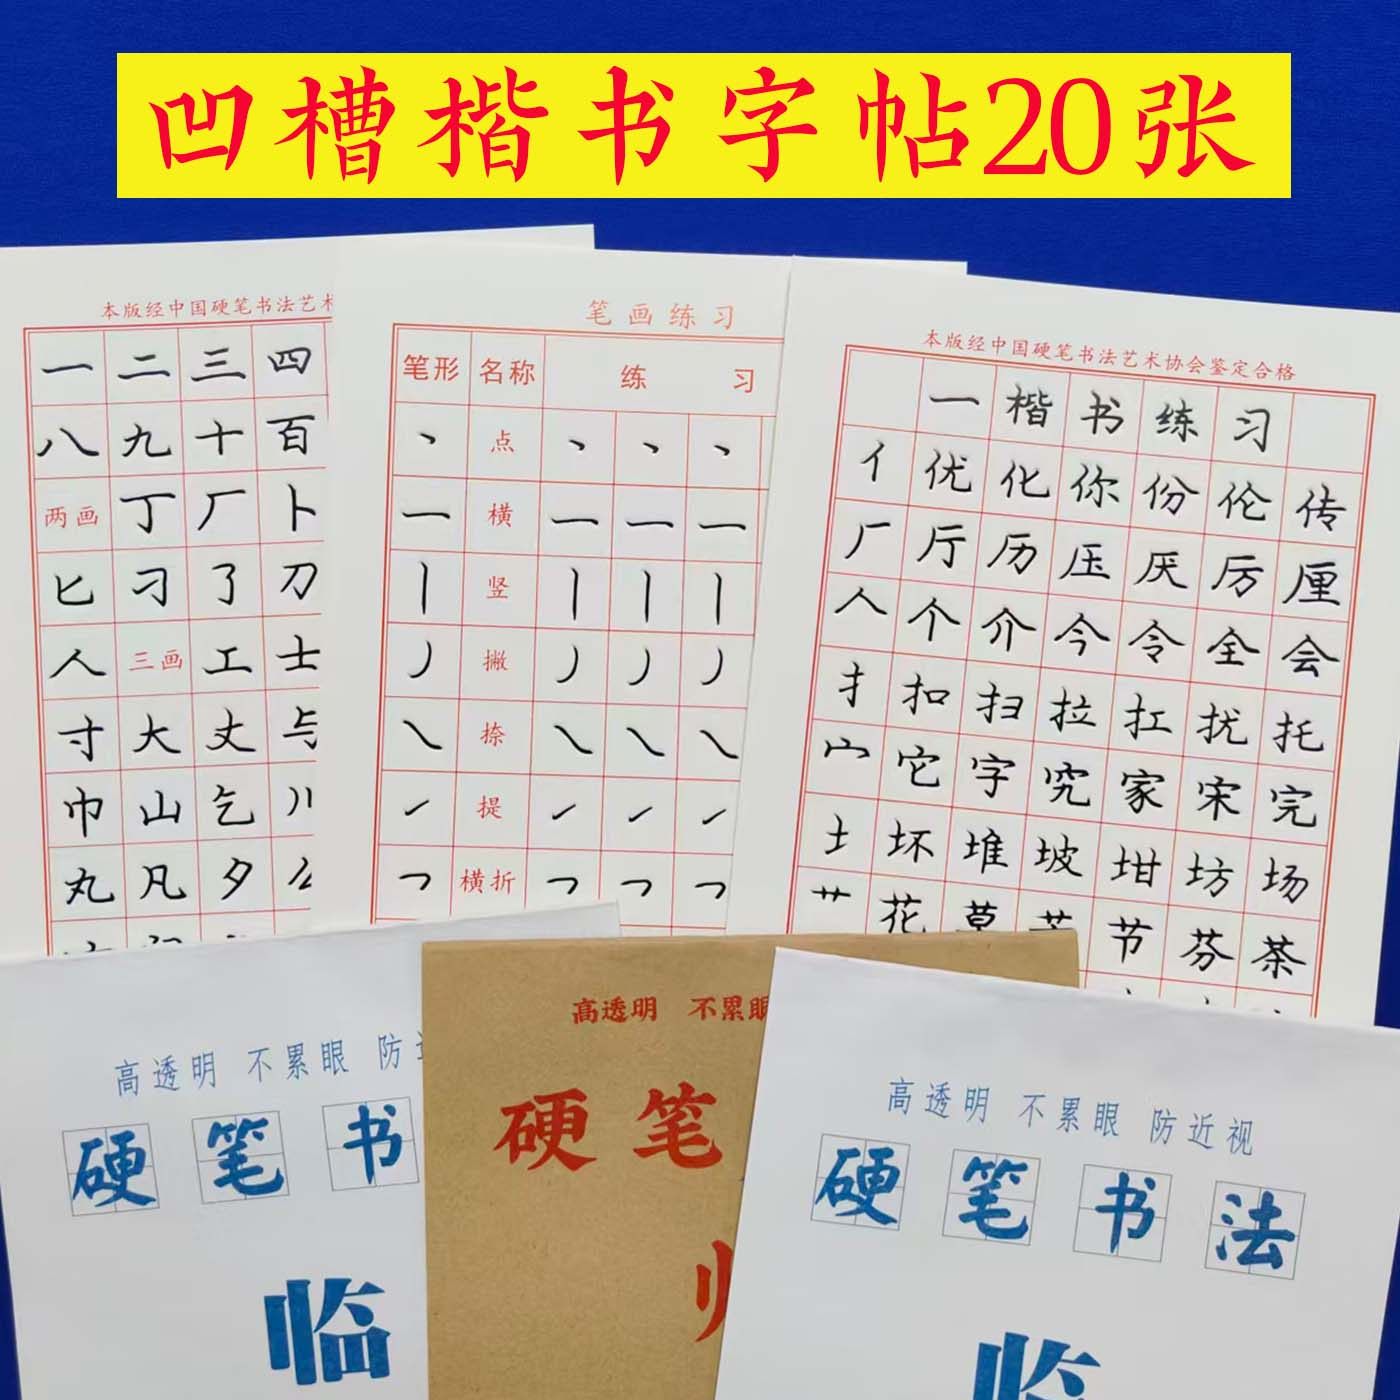 凹槽楷书字帖20张
本版经中国硬笔书法艺术
一 二 三 四
八 九 十 百
两画 丁 厂 卜
匕 刁 了 刀
人 三画 工 士
寸 大 丈 与
巾 山 乞 川
丸 凡 夕 么
笔画练习
笔形 名称 练 习
丶 点 丶 丶 丶
一 横 一 一 一
丨 竖 丨 丨 丨
丿 撇 丿 丿 丿
㇏ 捺 ㇏ ㇏ ㇏
㇀ 提 ㇀ ㇀ ㇀
㇕ 横折 ㇕ ㇕ ㇕
本版经中国硬笔书法艺术协会鉴定合格
一 楷 书 练 习
亻 优 化 你 份 伦 传
厂 厅 历 压 厌 厉 厘
人 个 介 今 令 全 会
扌 扣 扫 拉 扛 扰 托
宀 它 字 究 家 宋 完
土 坏 堆 坡 坩 坊 场
艹 花 草 节 芬 茶
高透明 不累眼 防
硬笔书
临
高透明 不累眼
硬笔
高透明 不累眼 防近视
硬笔书法
临